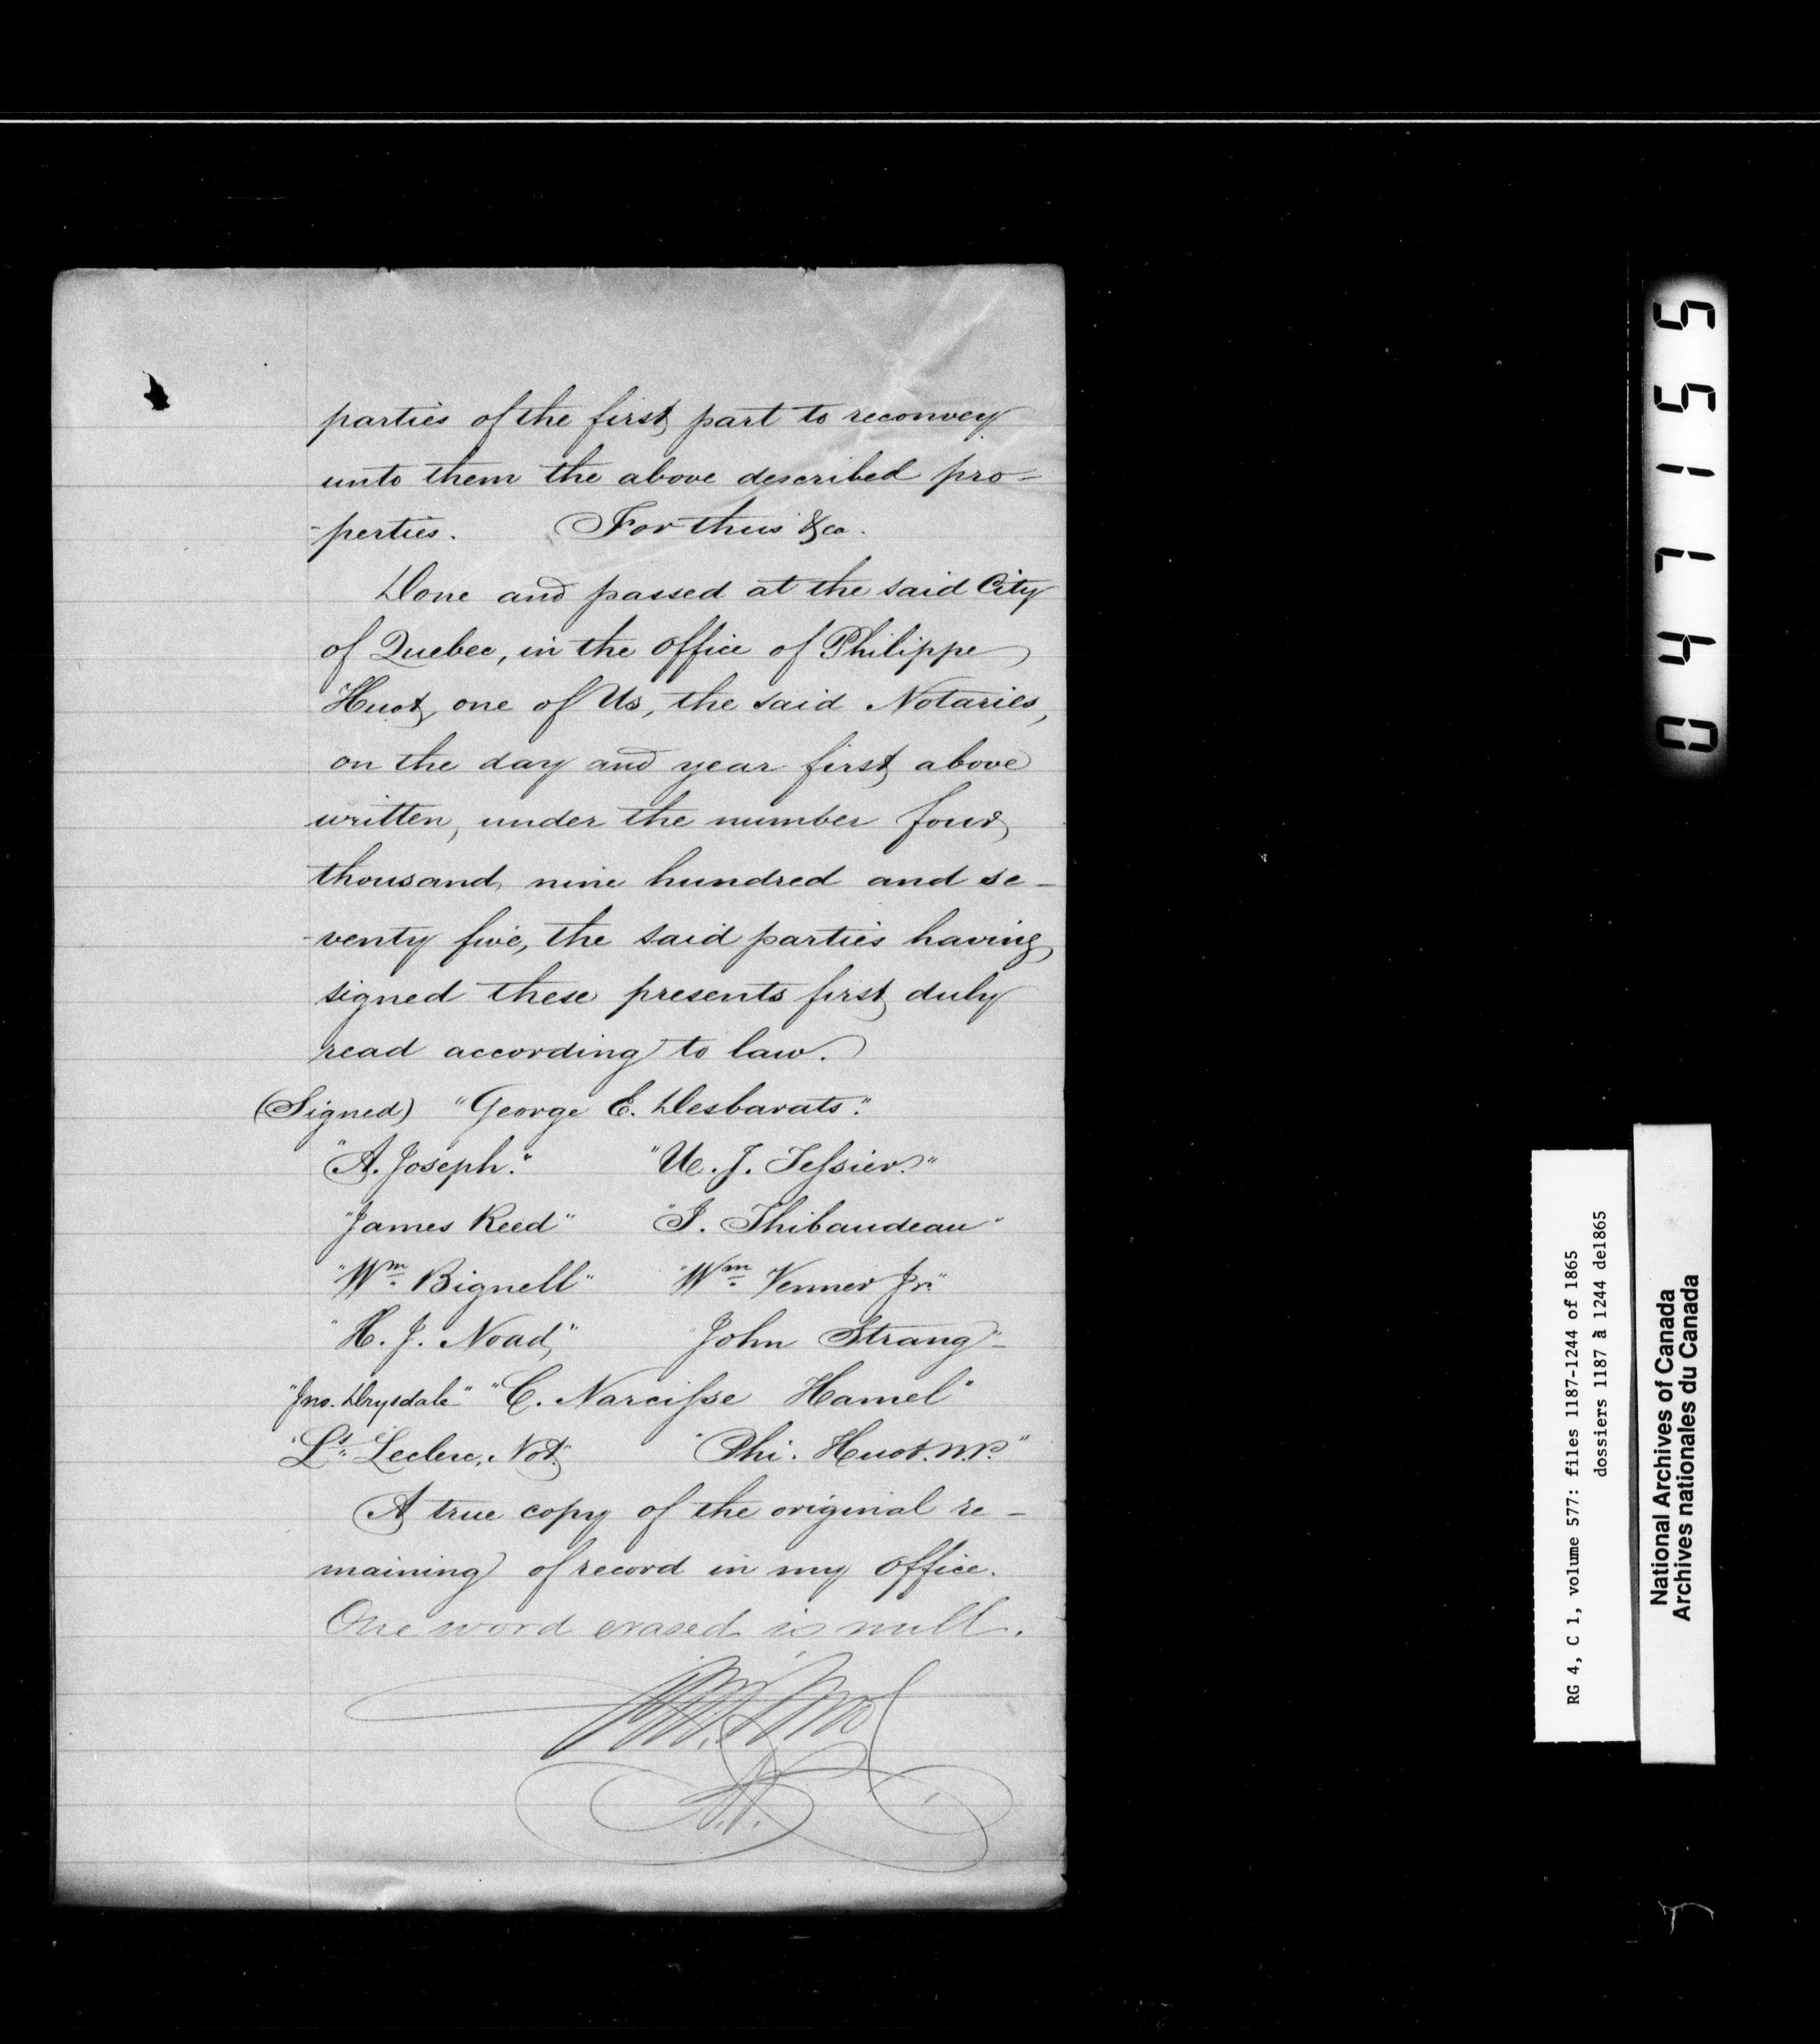 parties of the first part to reconvey
unto them the above described pro-
-perties. For thus &ca.
Done and passed at the said City
of Quebec, in the office of Philippe
Huot, one of Us, the said Notaries,
on the day and year first above
written, under the number four
thousand nine hundred and se-
-venty five, the said parties having
signed these presents first duly
read according to law.
(Signed) "George E. Desbarats."
"A. Joseph." "U. J. Tessier."
"James Reed" "I. Thibaudeau"
"Wm. Bignell" "Wm. Venner Jr."
"H. J. Noad," "John Strang"
"Jno. Drysdale" "C. Narcisse Hamel"
"Ls. Leclerc, Not." "Phi. Huot. N.P."
A true copy of the original re-
maining of record in my office.
One word erased is null.
041155
RG 4, C 1, volume 577: files 1187-1244 of 1865
dossiers 1187 à 1244 de1865
National Archives of Canada
Archives nationales du Canada